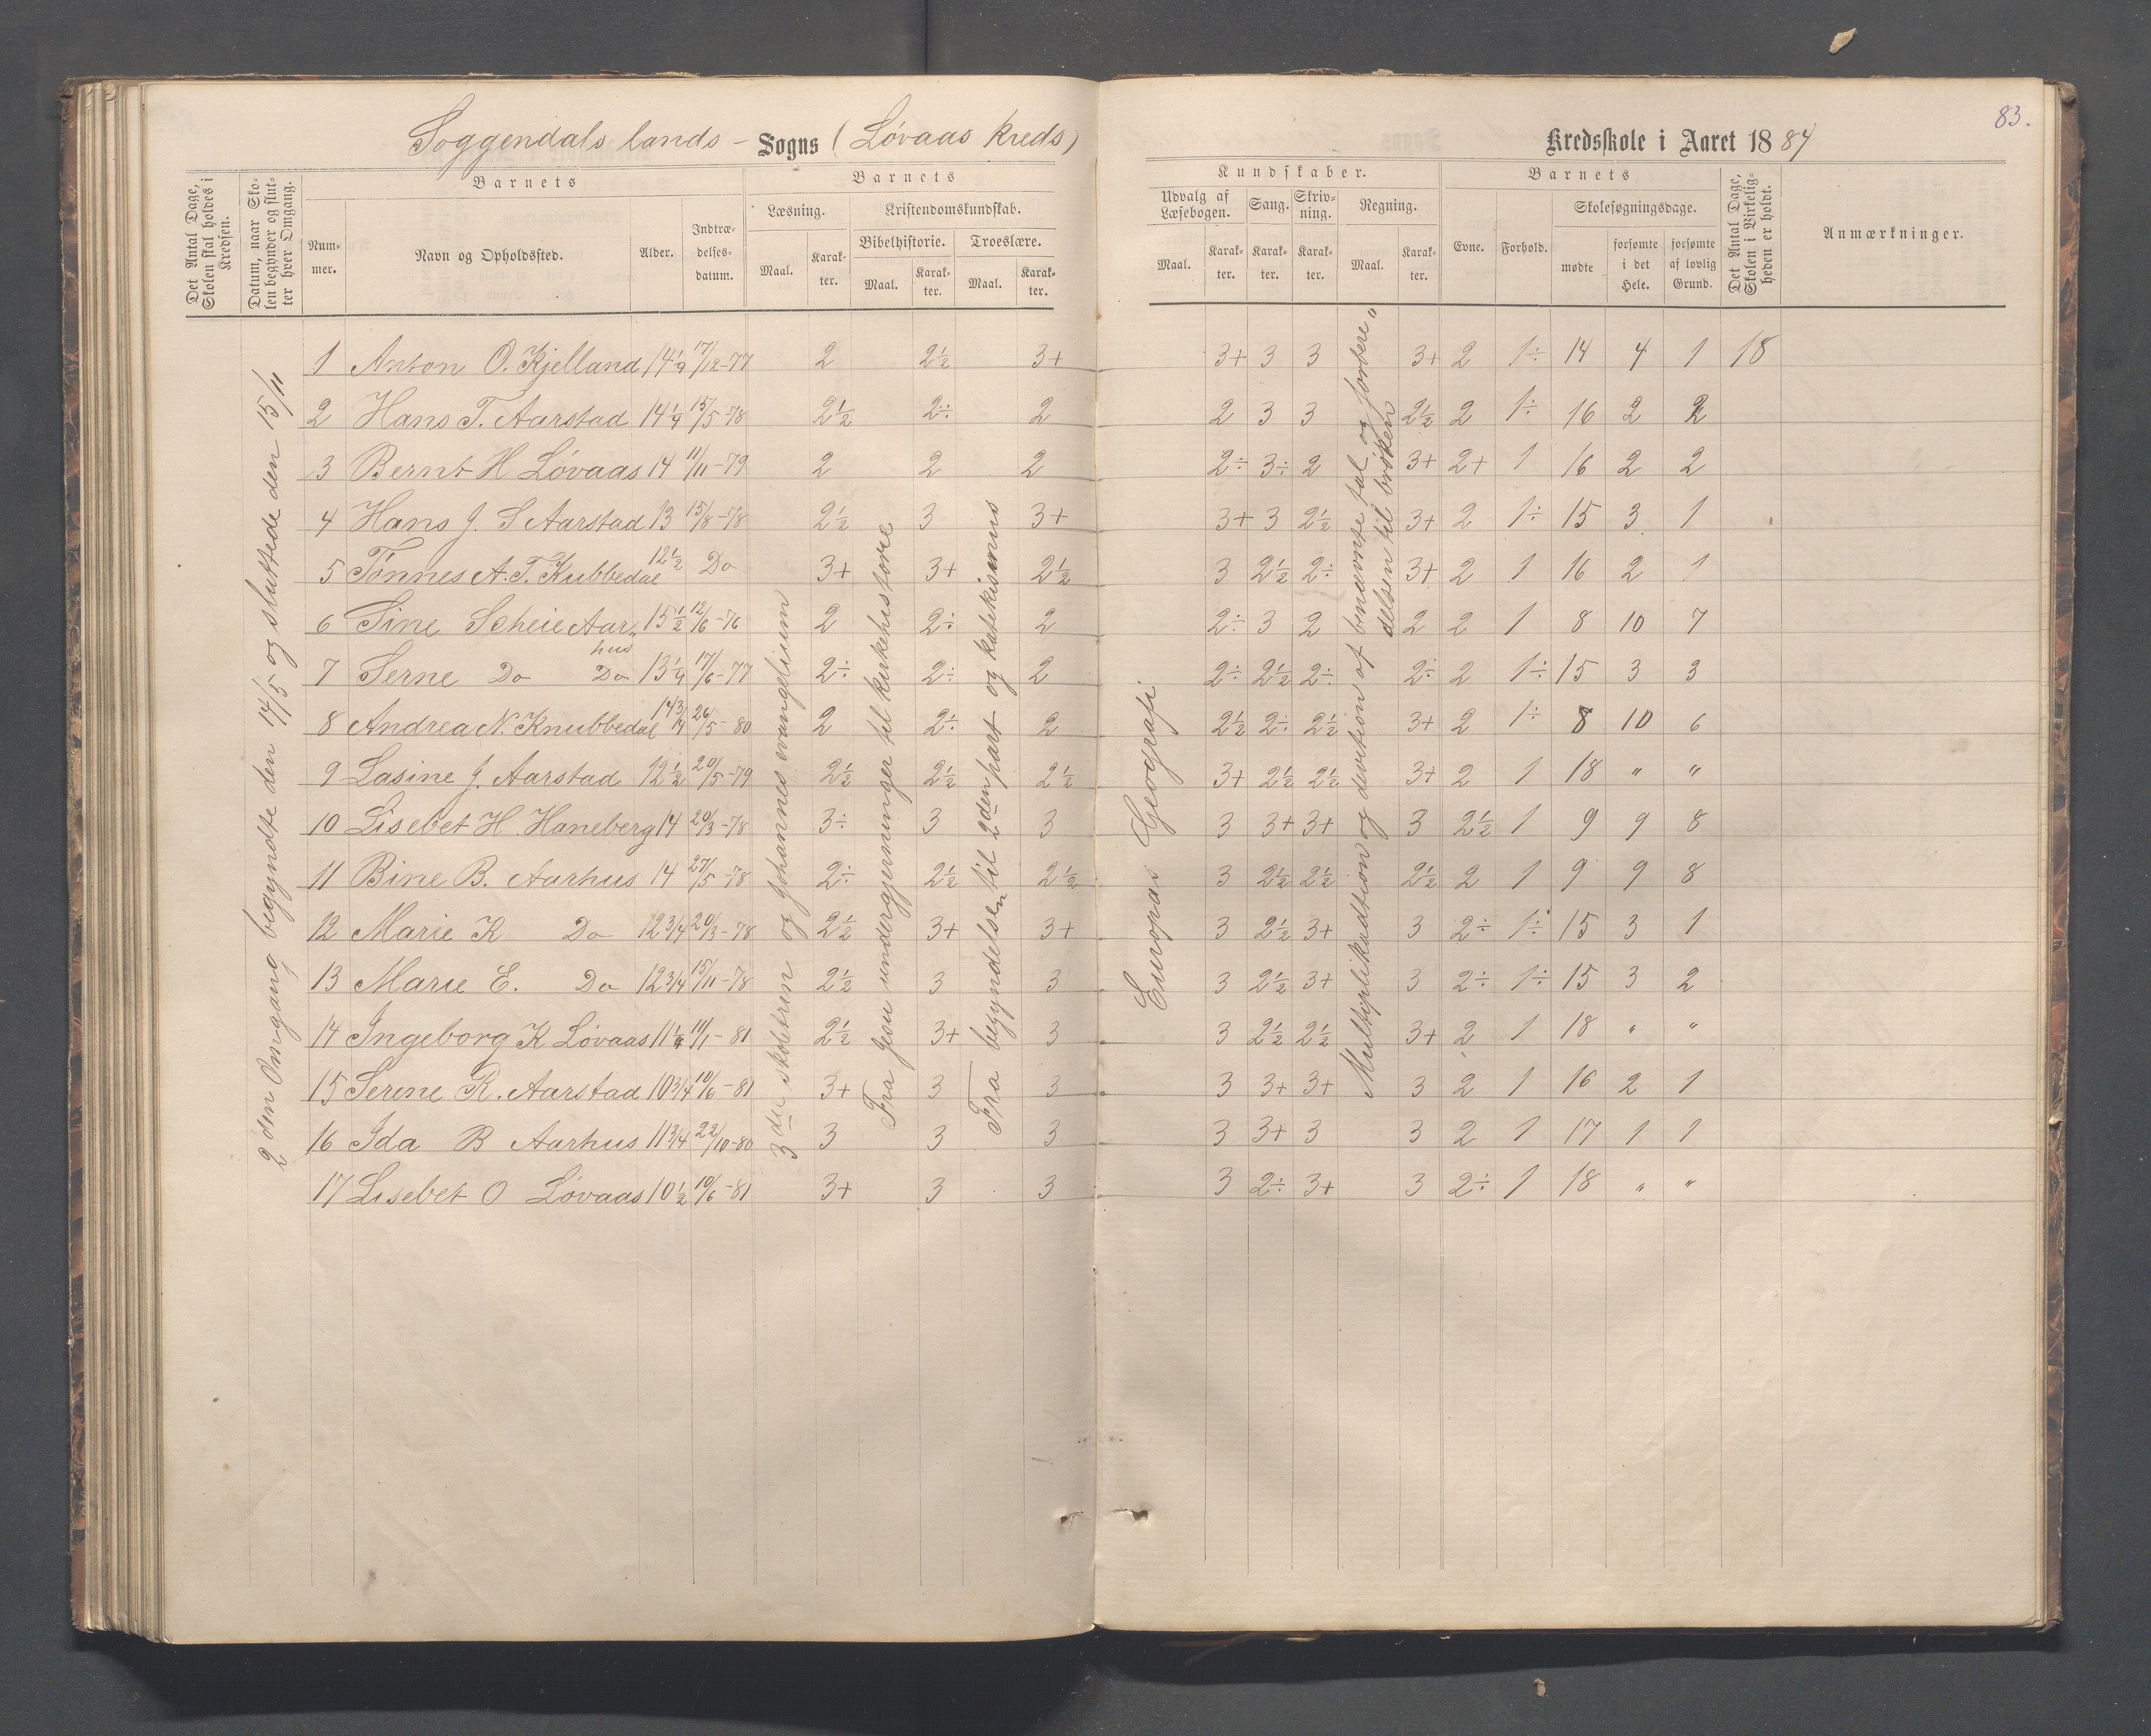 83.
Soggendals lands - Sogns (Løvaas kreds)
Kredsskole i Aaret 1884
Det Antal Dage, Skolen skal holdes i Kredsen.
Datum, naar Skolen begynder og slutter hver Omgang.
Barnets
Nummer.
Navn og Opholdssted.
Alder.
Indtrædelsesdatum.
Barnets
Læsning.
Maal.
Karakter.
Kristendomskundskab.
Bibelhistorie.
Maal.
Karakter.
Troeslære.
Maal.
Karakter.
Kundskaber.
Udvalg af Læsebogen.
Maal.
Karakter.
Sang.
Karakter.
Skrivning.
Karakter.
Regning.
Maal.
Karakter.
Barnets
Evne.
Forhold.
Skolesøgningsdage.
mødte
forsømte i det Hele.
forsømte af lovlig Grund.
Det Antal Dage, Skolen i Virkeligheden er holdt.
Anmærkninger.
2den Omgang begyndte den 14/5 og sluttede den 15/11
3die skoletrin og Johannes evangelium
Fra Jesu undergjerninger til kirkehistorie
Fra begyndelsen til 2den part og katekismus
Europas Geografi
Multiplikadtion og devition af benævnte tal og forbere„
delsen til brøken
1 Anton O. Kjelland 14 1/4 17/12-77 2 2 1/2 3+ 3+ 3 3 3+ 2 1÷ 14 4 1 18
2 Hans T. Aarstad 14 1/4 15/5-78 2 1/2 2÷ 2 2 3 3 2 1/2 2 1÷ 16 2 2
3 Bernt H Løvaas 14 11/11-79 2 2 2 2÷ 3÷ 2 3+ 2+ 1 16 2 2
4 Hans J. S Aarstad 13 15/8-78 2 1/2 3 3+ 3+ 3 2 1/2 3+ 2 1÷ 15 3 1
5 Tønnes A. T. Kubbedal 12 1/2 Do 3+ 3+ 2 1/2 3 2 1/2 2÷ 3+ 2 1 16 2 1
6 Sine Scheie Aar„hus 15 1/2 12/6-76 2 2÷ 2 2÷ 3 2 2 2 1 8 10 7
7 Serne Do Do 13 1/4 17/6-77 2÷ 2÷ 2 2÷ 2 1/2 2÷ 2÷ 2 1÷ 15 3 3
8 Andrea N. Knubbedal 14 3/4 26/5-80 2 2÷ 2 2 1/2 2÷ 2 1/2 3+ 2 1÷ 8 10 6
9 Lasine J. Aarstad 12 1/2 20/5-79 2 1/2 2 1/2 2 1/2 3+ 2 1/2 2 1/2 3+ 2 1 18 " "
10 Lisebet H. Haneberg 14 20/3-78 3÷ 3 3 3 3+ 3+ 3 2 1/2 1 9 9 8
11 Bine B. Aarhus 14 27/5-78 2÷ 2 1/2 2 1/2 3 2 1/2 2 1/2 2 1/2 2 1 9 9 8
12 Marie K Do 12 3/4 20/3-78 2 1/2 3+ 3+ 3 2 1/2 3+ 3 2÷ 1÷ 15 3 1
13 Marie E. Do 12 3/4 15/11-78 2 1/2 3 3 3 2 1/2 3+ 3 2÷ 1÷ 15 3 2
14 Ingeborg K Løvaas 11 1/4 11/1-81 2 1/2 3+ 3 3 2 1/2 2 1/2 3+ 2 1 18 " "
15 Serene R. Aarstad 10 3/4 10/6-81 3+ 3 3 3 3+ 3+ 3 2 1 16 2 1
16 Ida B Aarhus 11 3/4 22/10-80 3 3 3 3 3+ 3 3 2 1 17 1 1
17 Lisebet O Løvaas 10 1/2 10/6-81 3+ 3 3 3 2÷ 3+ 3 2÷ 1 18 " "